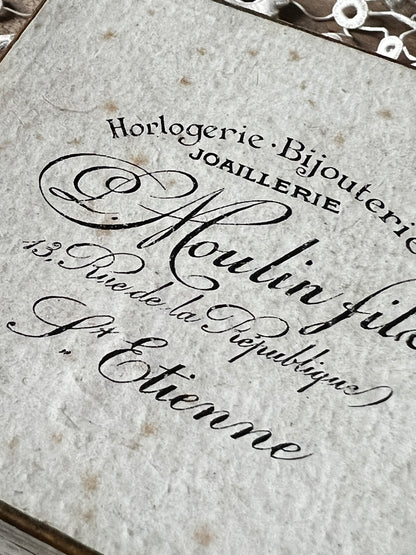 Horlogerie · Bijouterie
JOAILLERIE
L. Moulin fils
13, Rue de la République
St Etienne